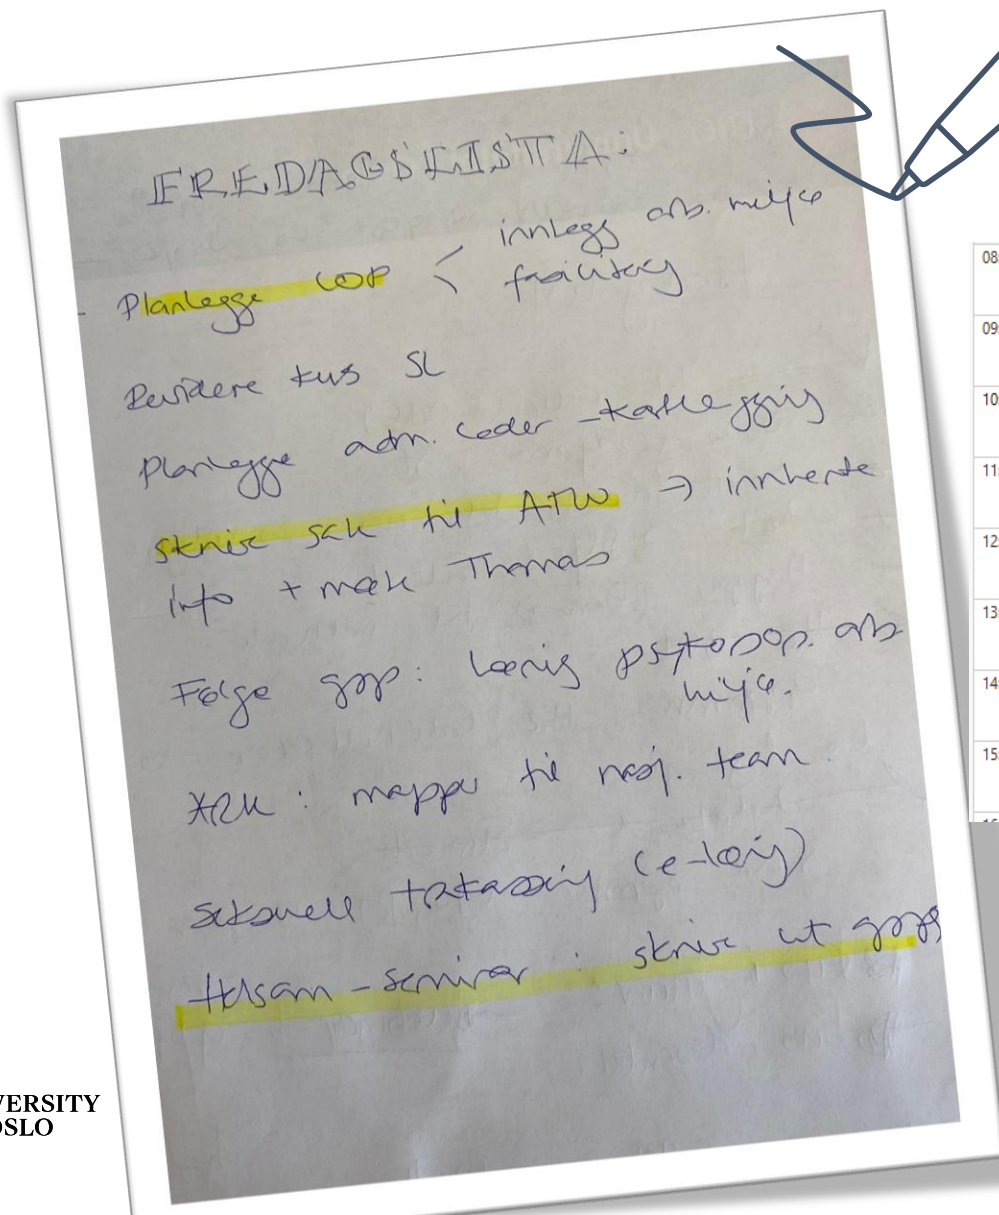 FREDAGSLISTA:
innlegg arb. miljø
- Planlegge LOP < fasilitering
Revidere kurs SL
Planlegge adm. leder - kartlegging
skrive sak til AMU → innhente
info + møte Thomas
Følge opp: læring psykosos. arb
miljø.
ARK: mapper til nasj. team.
Seksuell trakassering (e-læring)
- seminar : skrive ut
08
09
10
11
12
13
14
15
VERSITY
OSLO